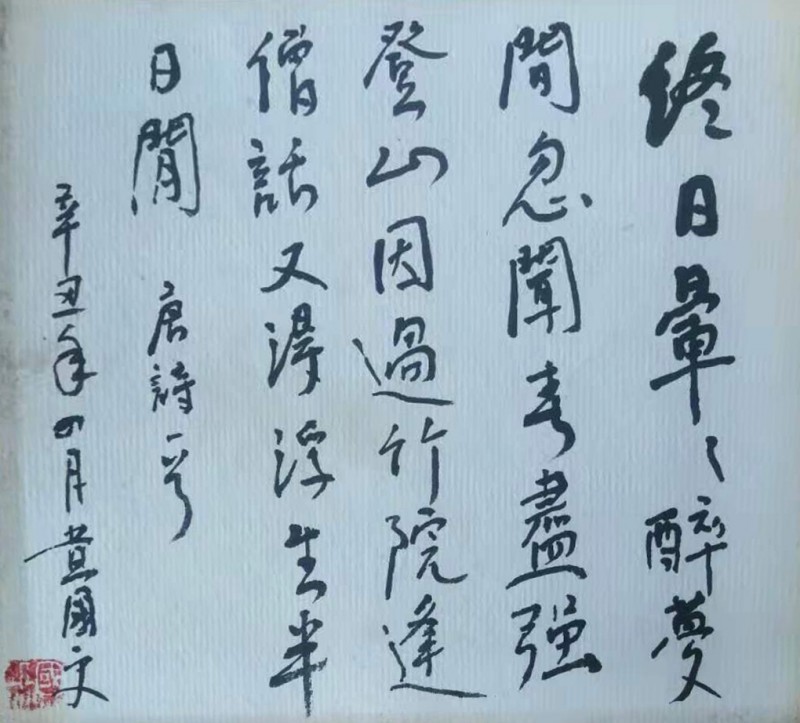 終日暈々醉夢
間忽聞春盡强
登山因過竹院逢
僧話又得浮生半
日閒 唐詩一首
辛丑年四月黄國文